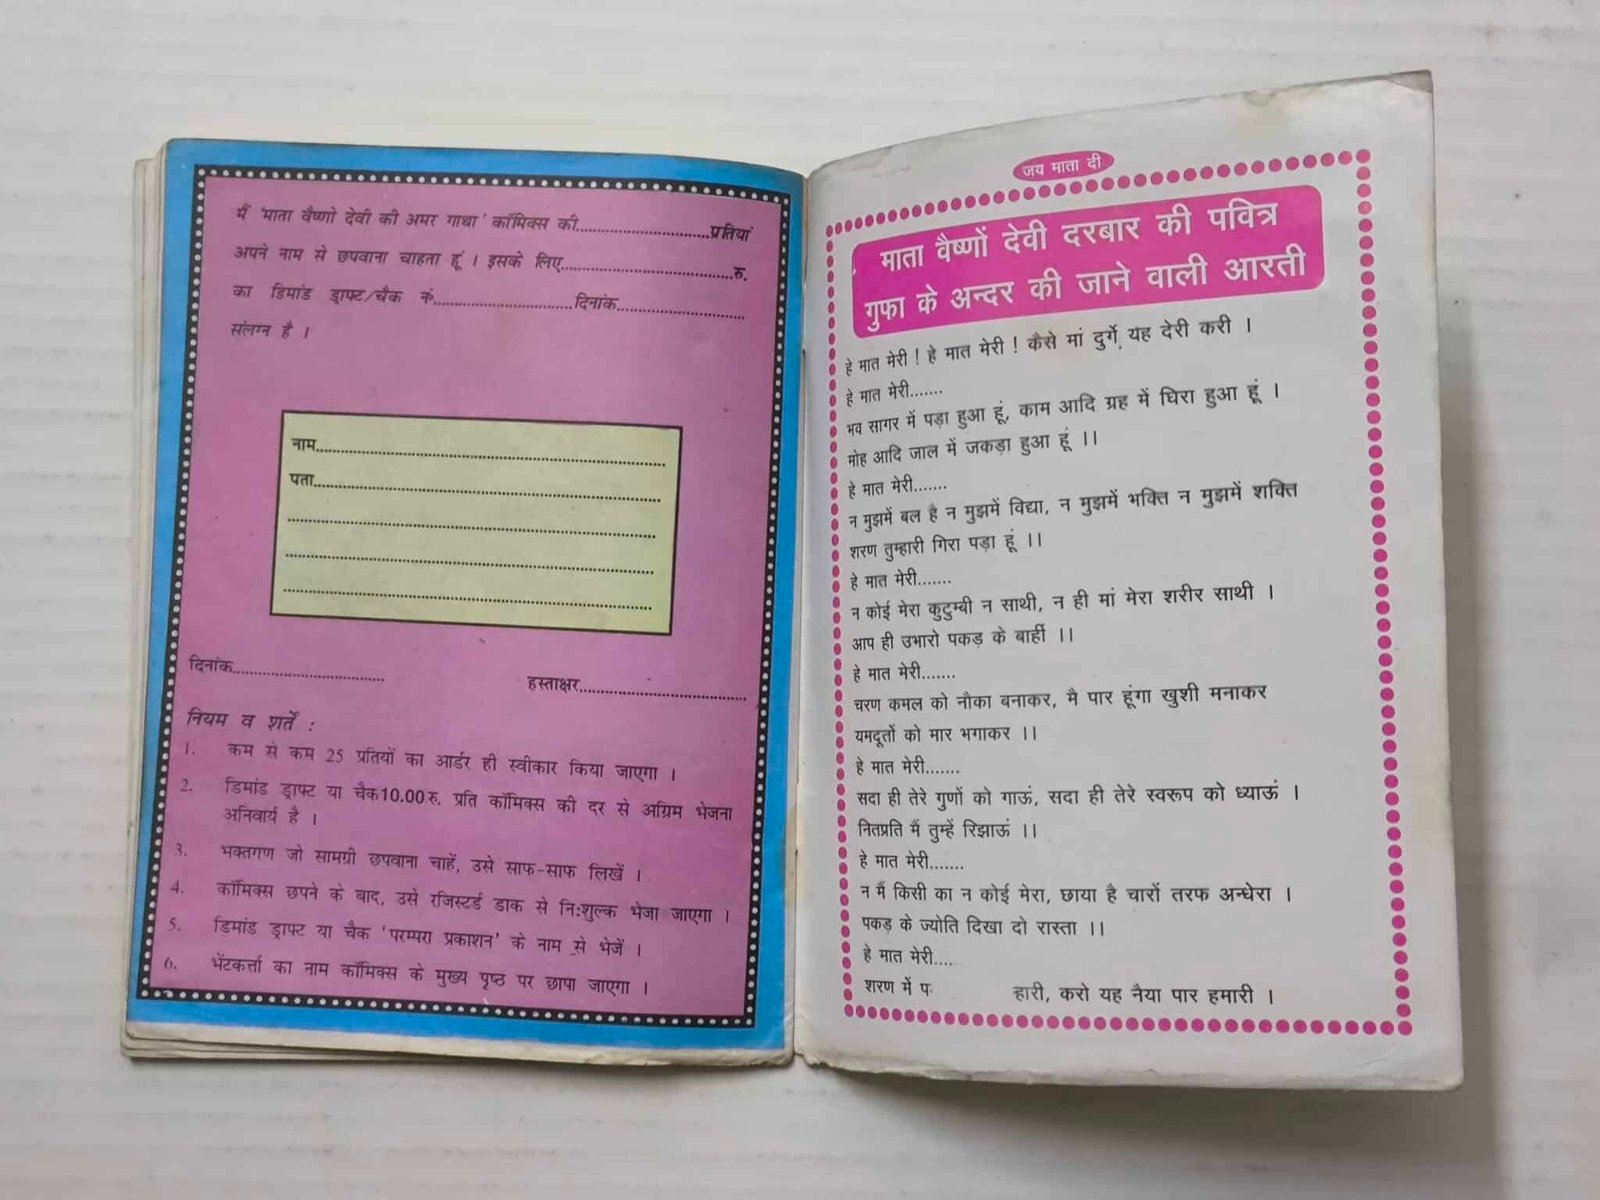 मैं 'माता वैष्णो देवी की अमर गाथा' कॉमिक्स की..............................प्रतियां
अपने नाम से छपवाना चाहता हूं । इसके लिए......................................रु.
का डिमांड ड्राफ्ट/चैक नं..............................दिनांक............................
संलग्न है ।
नाम................................................................................
पता................................................................................
................................................................................
................................................................................
................................................................................
दिनांक..................................
हस्ताक्षर.....................................
नियम व शर्तें :
1. कम से कम 25 प्रतियों का आर्डर ही स्वीकार किया जाएगा ।
2. डिमांड ड्राफ्ट या चैक10.00रु. प्रति कॉमिक्स की दर से अग्रिम भेजना
अनिवार्य है ।
3. भक्तगण जो सामग्री छपवाना चाहें, उसे साफ-साफ लिखें ।
4. कॉमिक्स छपने के बाद, उसे रजिस्टर्ड डाक से नि:शुल्क भेजा जाएगा ।
5. डिमांड ड्राफ्ट या चैक 'परम्परा प्रकाशन' के नाम से भेजें ।
6. भेंटकर्त्ता का नाम कॉमिक्स के मुख्य पृष्ठ पर छापा जाएगा ।
जय माता दी
माता वैष्णों देवी दरबार की पवित्र
गुफा के अन्दर की जाने वाली आरती
हे मात मेरी ! हे मात मेरी ! कैसे मां दुर्गे यह देरी करी ।
हे मात मेरी.......
भव सागर में पड़ा हुआ हूं, काम आदि ग्रह में घिरा हुआ हूं ।
मोह आदि जाल में जकड़ा हुआ हूं ।।
हे मात मेरी.......
न मुझमें बल है न मुझमें विद्या, न मुझमें भक्ति न मुझमें शक्ति
शरण तुम्हारी गिरा पड़ा हूं ।।
हे मात मेरी.......
न कोई मेरा कुटुम्बी न साथी, न ही मां मेरा शरीर साथी ।
आप ही उभारो पकड़ के बाहीं ।।
हे मात मेरी.......
चरण कमल को नौका बनाकर, मै पार हूंगा खुशी मनाकर
यमदूतों को मार भगाकर ।।
हे मात मेरी.......
सदा ही तेरे गुणों को गाऊं, सदा ही तेरे स्वरूप को ध्याऊं ।
नितप्रति मैं तुम्हें रिझाऊं ।।
हे मात मेरी.......
न मैं किसी का न कोई मेरा, छाया है चारों तरफ अन्धेरा ।
पकड़ के ज्योति दिखा दो रास्ता ।।
हे मात मेरी....
शरण में हारी, करो यह नैया पार हमारी ।